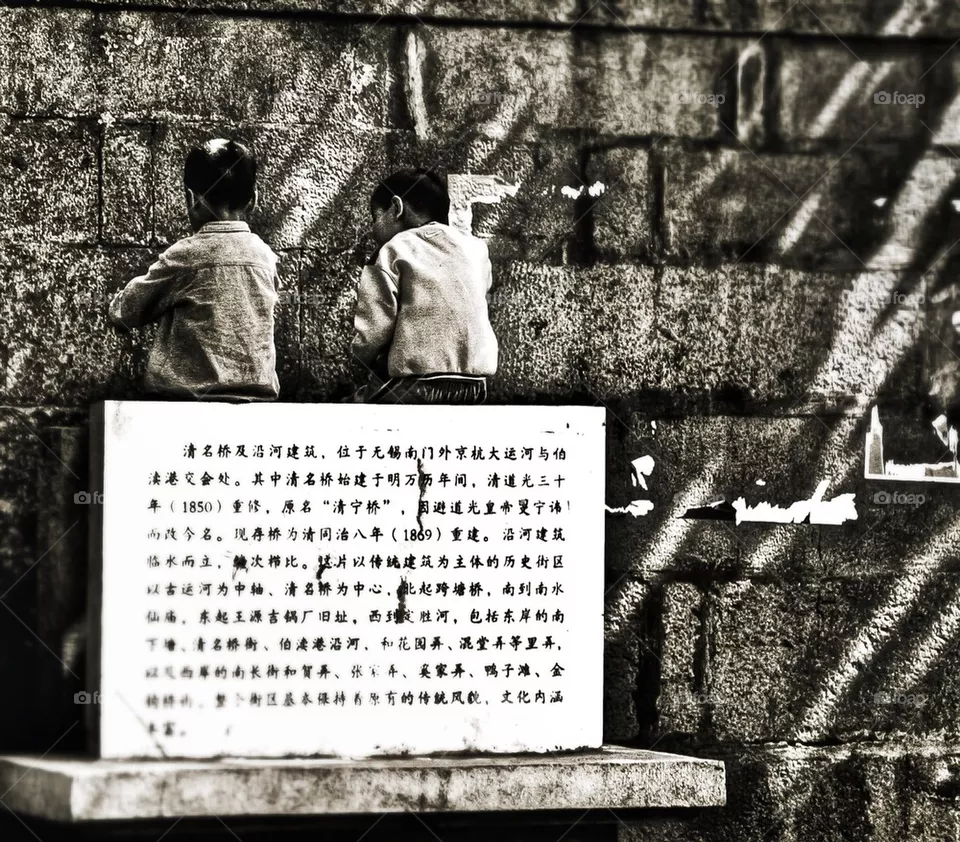 清名桥及沿河建筑，位于无锡南门外京杭大运河与伯
渎港交会处。其中清名桥始建于明万历年间，清道光三十
年（1850）重修，原名“清宁桥”，因避道光皇帝旻宁讳
而改今名。现存桥为清同治八年（1869）重建。沿河建筑
临水而立，鳞次栉比。这片以传统建筑为主体的历史街区
以古运河为中轴、清名桥为中心，北起跨塘桥，南到南水
仙庙，东起王源吉锅厂旧址，西到定胜河，包括东岸的南
下塘、清名桥街、伯渎港沿河，和花园弄、混堂弄等里弄，
以及西岸的南长街和贺弄、张家弄、奚家弄、鸭子滩、金
桥街。整个街区基本保持着原有的传统风貌，文化内涵
丰富。
foap
foap
foap
foap
foap
foap
foap
foap
foap
foap
foap
foap